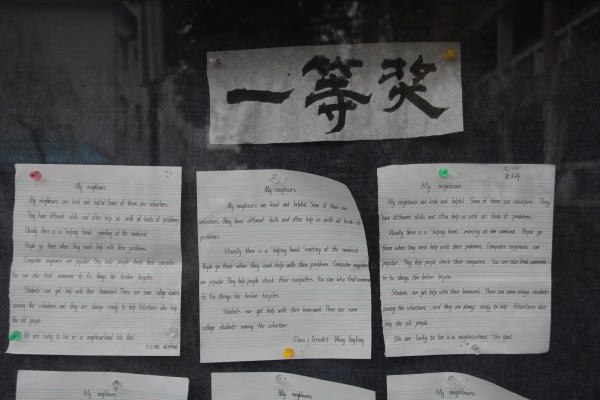 一等奖
My neighbours
My neighbours are kind and helpful. Some of them are volunteers.
They have different skills and often help us with all kinds of problems.
Usually there is a "helping hands" meeting at the weekend.
People go there when they need help with their problems.
Computer engineers are popular. They help people check their computer.
You can also find someone to fix things like broken bicycles.
Students can get help with their homework. There are some college students
among the volunteers, and they are always ready to help. Volunteers also help
the old people.
We are lucky to live in a neighbourhood like that.
My neighbours
My neighbours are kind and helpful. Some of them are
volunteers. They have different skills and often help us with all kinds of
problems.
Usually there is a "helping hands" meeting at the weekend.
People go there when they need help with their problems. Computer engineers
are popular. They help people check their computers. You can also find someone
to fix things like broken bicycles.
Students can get help with their homework. There are some
college students among the volunteer.
My neighbours
My neighbours are kind and helpful. Some of them are volunteers. They
have different skills and often help us with all kinds of problems.
Usually there is a "helping hands" meeting at the weekend. People go
there when they need help with their problems. Computer engineers are
popular. They help people check their computers. You can also find someone
to fix things like broken bicycle.
Students can get help with their homework. There are some college students
among the volunteers and they are always ready to help. Volunteers also
help the old people.
We are lucky to live in a neighbourhood like that.
My neighbours
My neighbours
My neighbours